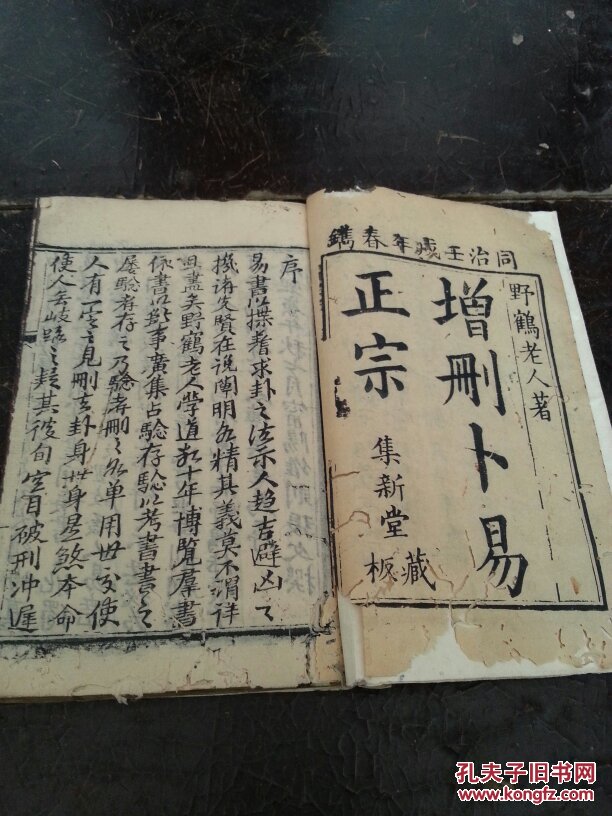 同治壬戌年春鐫
野鶴老人著
增刪卜易
正宗
集新堂
藏板
序
易書以揲蓍求卦之法示人趨吉避凶之
機諸先賢在說闡明為精其義莫不渭詳
且盡矣野鶴老人學道於十年博覽羣書
依書以斷事廣集占驗存驗以考書書之
屡驗者存之乃驗者刪之為单用世交使
人有一定之見刪去卦身世身星煞本命
使人無岐路之疑其彼旬空月破刑冲遲
孔夫子旧书网
www.kongfz.com